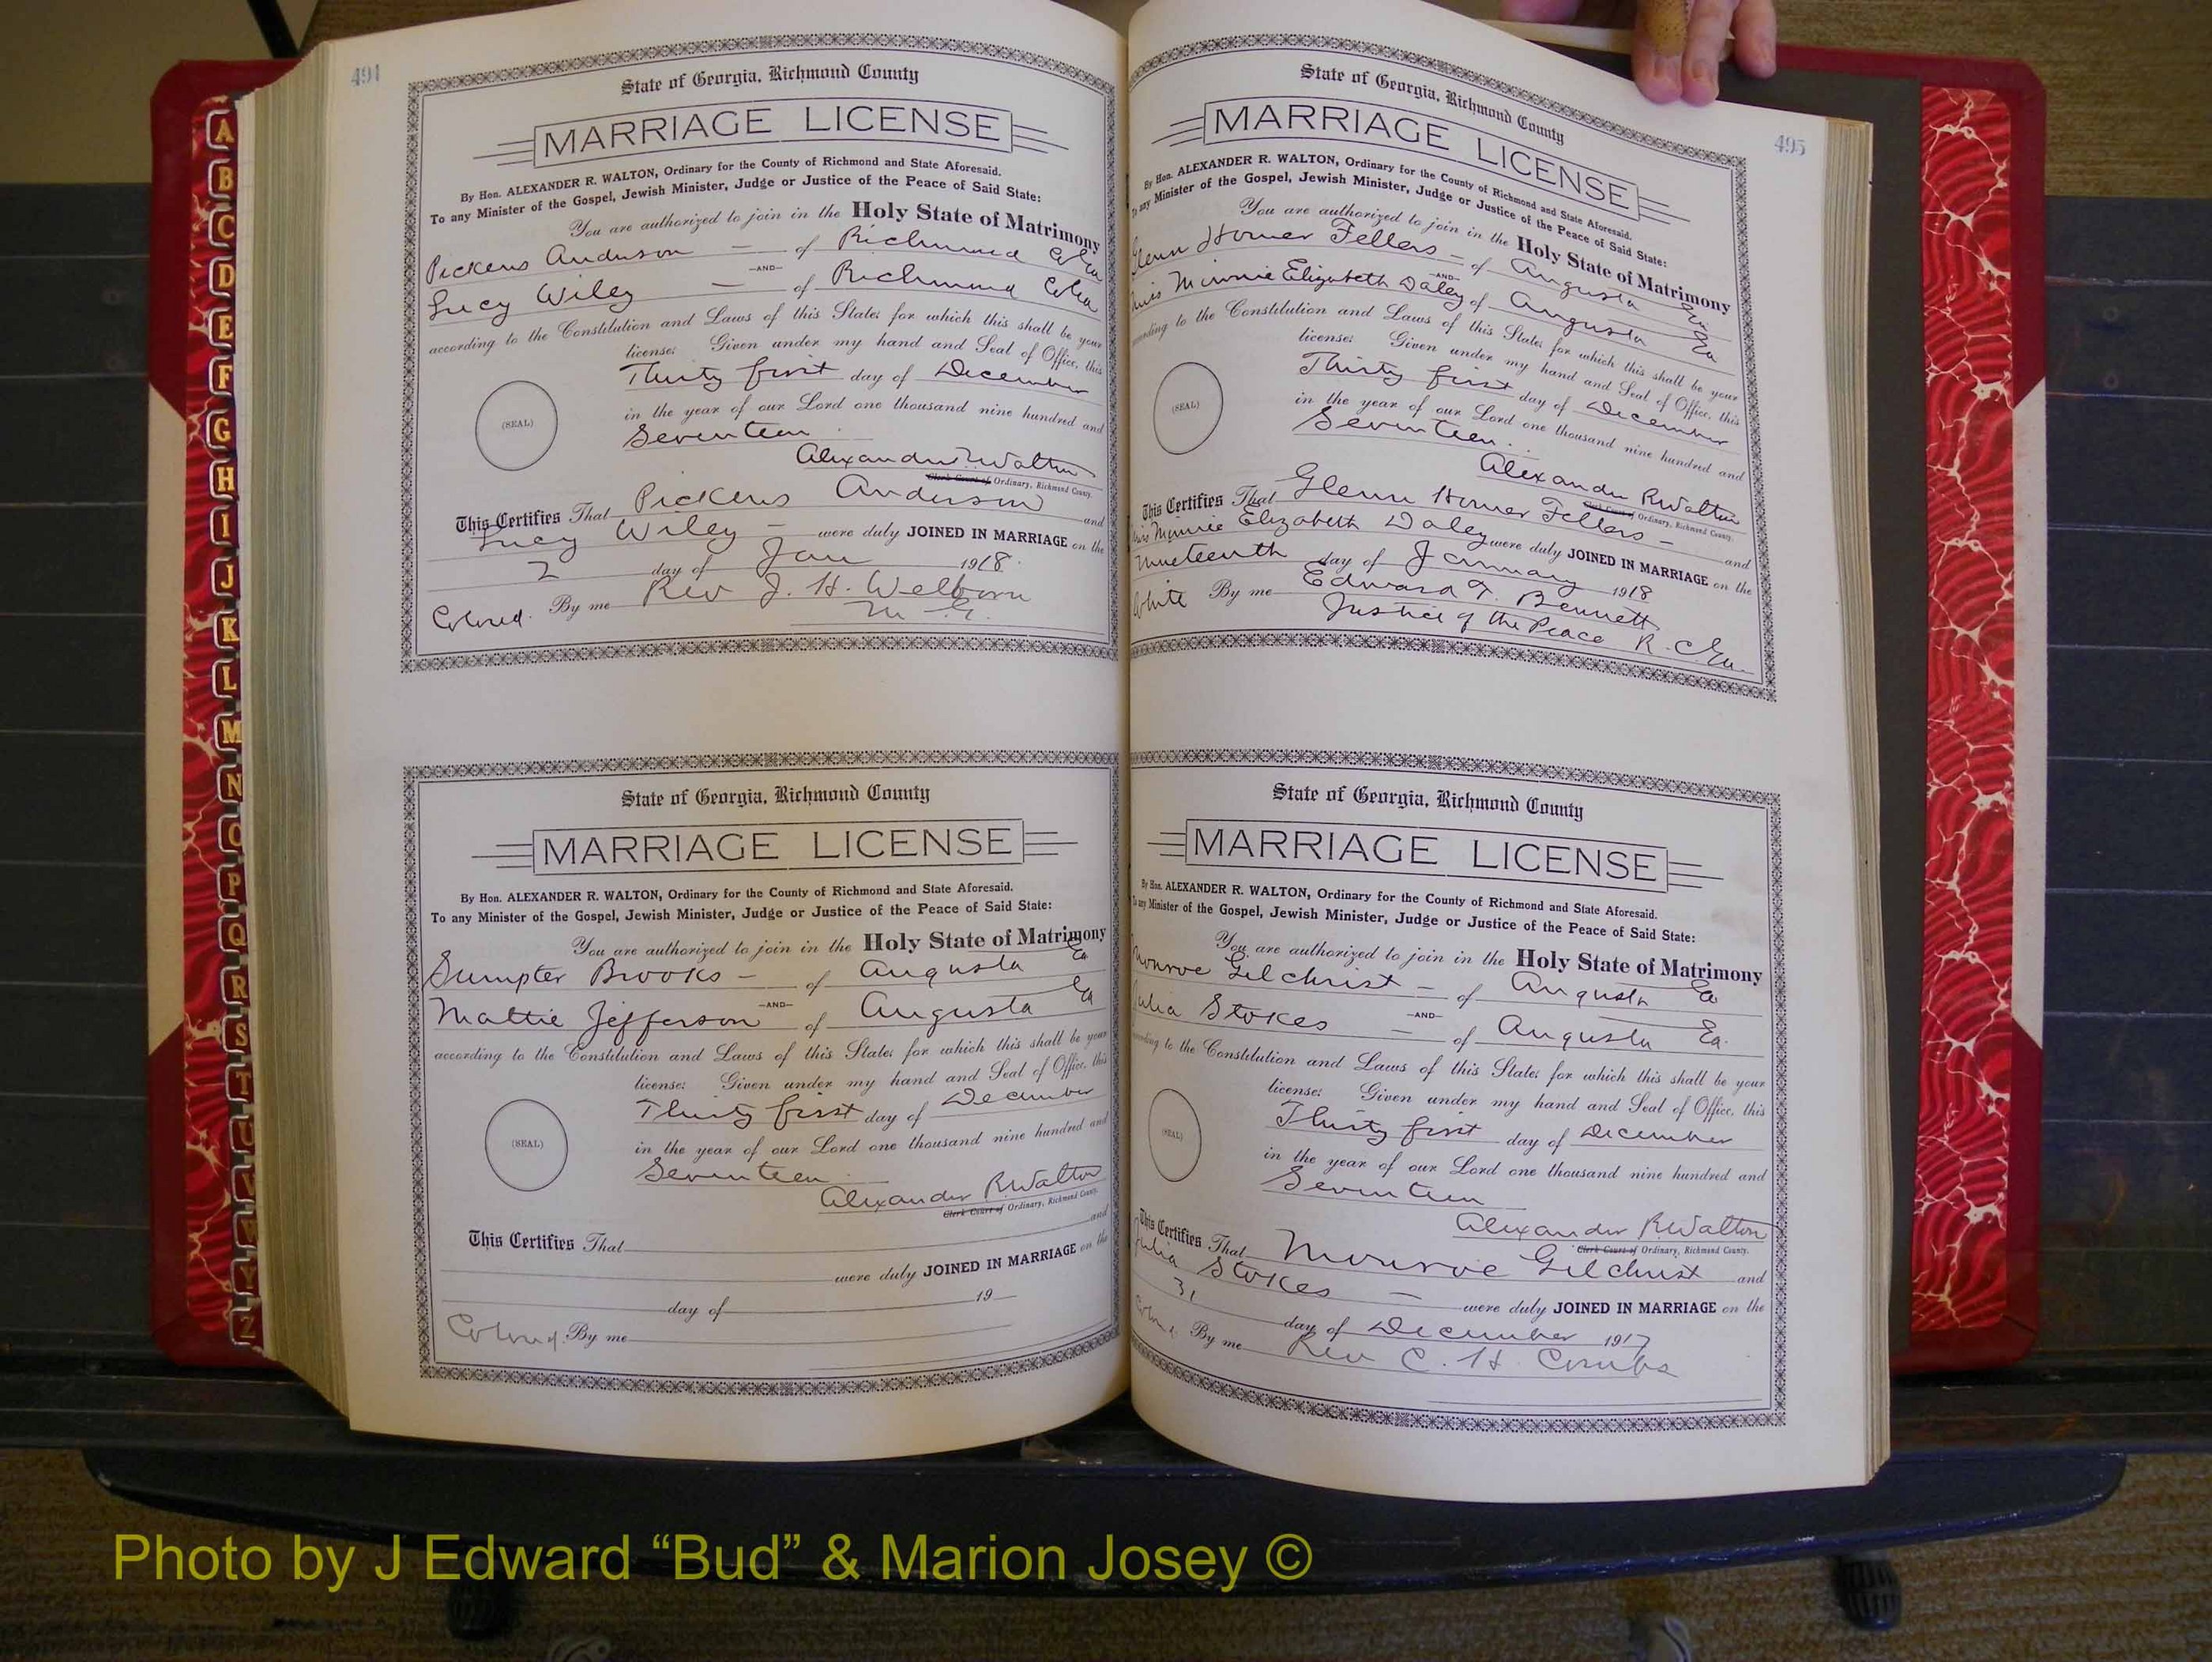 494
State of Georgia, Richmond County
MARRIAGE LICENSE
By Hon. ALEXANDER R. WALTON, Ordinary for the County of Richmond and State Aforesaid.
To any Minister of the Gospel, Jewish Minister, Judge or Justice of the Peace of Said State:
You are authorized to join in the Holy State of Matrimony
Pickens Anderson — of Richmond Co Ga
—AND—
Lucy Wiley — of Richmond Co Ga
according to the Constitution and Laws of this State; for which this shall be your
license: Given under my hand and Seal of Office, this
Thirty first day of December
(SEAL)
in the year of our Lord one thousand nine hundred and
Seventeen.
Alexander R Walton
Clerk Court of Ordinary, Richmond County.
This Certifies That Pickens Anderson and
Lucy Wiley — were duly JOINED IN MARRIAGE on the
2 day of Jan 1918.
Colored. By me Rev J. H. Welborn
M. G.
State of Georgia, Richmond County
MARRIAGE LICENSE
By Hon. ALEXANDER R. WALTON, Ordinary for the County of Richmond and State Aforesaid.
To any Minister of the Gospel, Jewish Minister, Judge or Justice of the Peace of Said State:
You are authorized to join in the Holy State of Matrimony
Sumpter Brooks — of Augusta Ga
—AND—
Mattie Jefferson of Augusta Ga
according to the Constitution and Laws of this State; for which this shall be your
license: Given under my hand and Seal of Office, this
Thirty first day of December
(SEAL)
in the year of our Lord one thousand nine hundred and
Seventeen
Alexander R Walton
Clerk Court of Ordinary, Richmond County.
This Certifies That and
were duly JOINED IN MARRIAGE on the
day of 19
Colored. By me
495
State of Georgia, Richmond County
MARRIAGE LICENSE
By Hon. ALEXANDER R. WALTON, Ordinary for the County of Richmond and State Aforesaid.
To any Minister of the Gospel, Jewish Minister, Judge or Justice of the Peace of Said State:
You are authorized to join in the Holy State of Matrimony
Glenn Homer Fellers — of Augusta Ga
—AND—
Miss Minnie Elizabeth Daley of Augusta Ga
according to the Constitution and Laws of this State; for which this shall be your
license: Given under my hand and Seal of Office, this
Thirty first day of December
(SEAL)
in the year of our Lord one thousand nine hundred and
Seventeen.
Alexander R Walton
Clerk Court of Ordinary, Richmond County.
This Certifies That Glenn Homer Fellers — and
Miss Minnie Elizabeth Daley were duly JOINED IN MARRIAGE on the
Nineteenth day of January 1918
White By me Edward T. Bennett
Justice of the Peace R. C. Ga.
State of Georgia, Richmond County
MARRIAGE LICENSE
By Hon. ALEXANDER R. WALTON, Ordinary for the County of Richmond and State Aforesaid.
To any Minister of the Gospel, Jewish Minister, Judge or Justice of the Peace of Said State:
You are authorized to join in the Holy State of Matrimony
Monroe Gilchrist — of Augusta Ga
—AND—
Julia Stokes — of Augusta Ga.
according to the Constitution and Laws of this State; for which this shall be your
license: Given under my hand and Seal of Office, this
Thirty first day of December
(SEAL)
in the year of our Lord one thousand nine hundred and
Seventeen
Alexander R Walton
Clerk Court of Ordinary, Richmond County.
This Certifies That Monroe Gilchrist and
Julia Stokes — were duly JOINED IN MARRIAGE on the
31 day of December 1917
By me Rev C. H. Combs
A
B
C
D
E
F
G
H
I
J
K
L
M
N
O
P
Q
R
S
T
U
V
W
Y
Z
Photo by J Edward “Bud” & Marion Josey ©